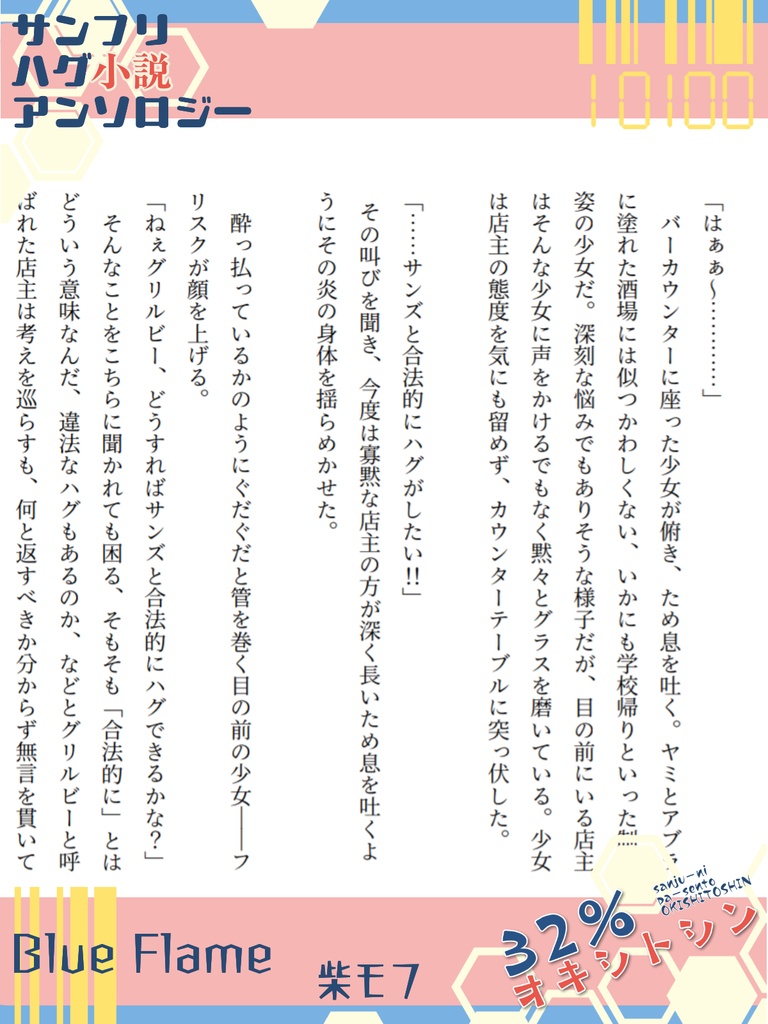 サンフリ
ハグ小説
アンソロジー
10100
「はぁぁ～…………」
バーカウンターに座った少女が俯き、ため息を吐く。ヤミとアブラ
に塗れた酒場には似つかわしくない、いかにも学校帰りといった制
姿の少女だ。深刻な悩みでもありそうな様子だが、目の前にいる店主
はそんな少女に声をかけるでもなく黙々とグラスを磨いている。少女
は店主の態度を気にも留めず、カウンターテーブルに突っ伏した。
「……サンズと合法的にハグがしたい!!」
その叫びを聞き、今度は寡黙な店主の方が深く長いため息を吐くよ
うにその炎の身体を揺らめかせた。
酔っ払っているかのようにぐだぐだと管を巻く目の前の少女――フ
リスクが顔を上げる。
「ねぇグリルビー、どうすればサンズと合法的にハグできるかな？」
そんなことをこちらに聞かれても困る、そもそも「合法的に」とは
どういう意味なんだ、違法なハグもあるのか、などとグリルビーと呼
ばれた店主は考えを巡らすも、何と返すべきか分からず無言を貫いて
Blue Flame
柴モフ
sanju-ni
pa-sento
OKISHITOSHIN
32%
オキシトシン